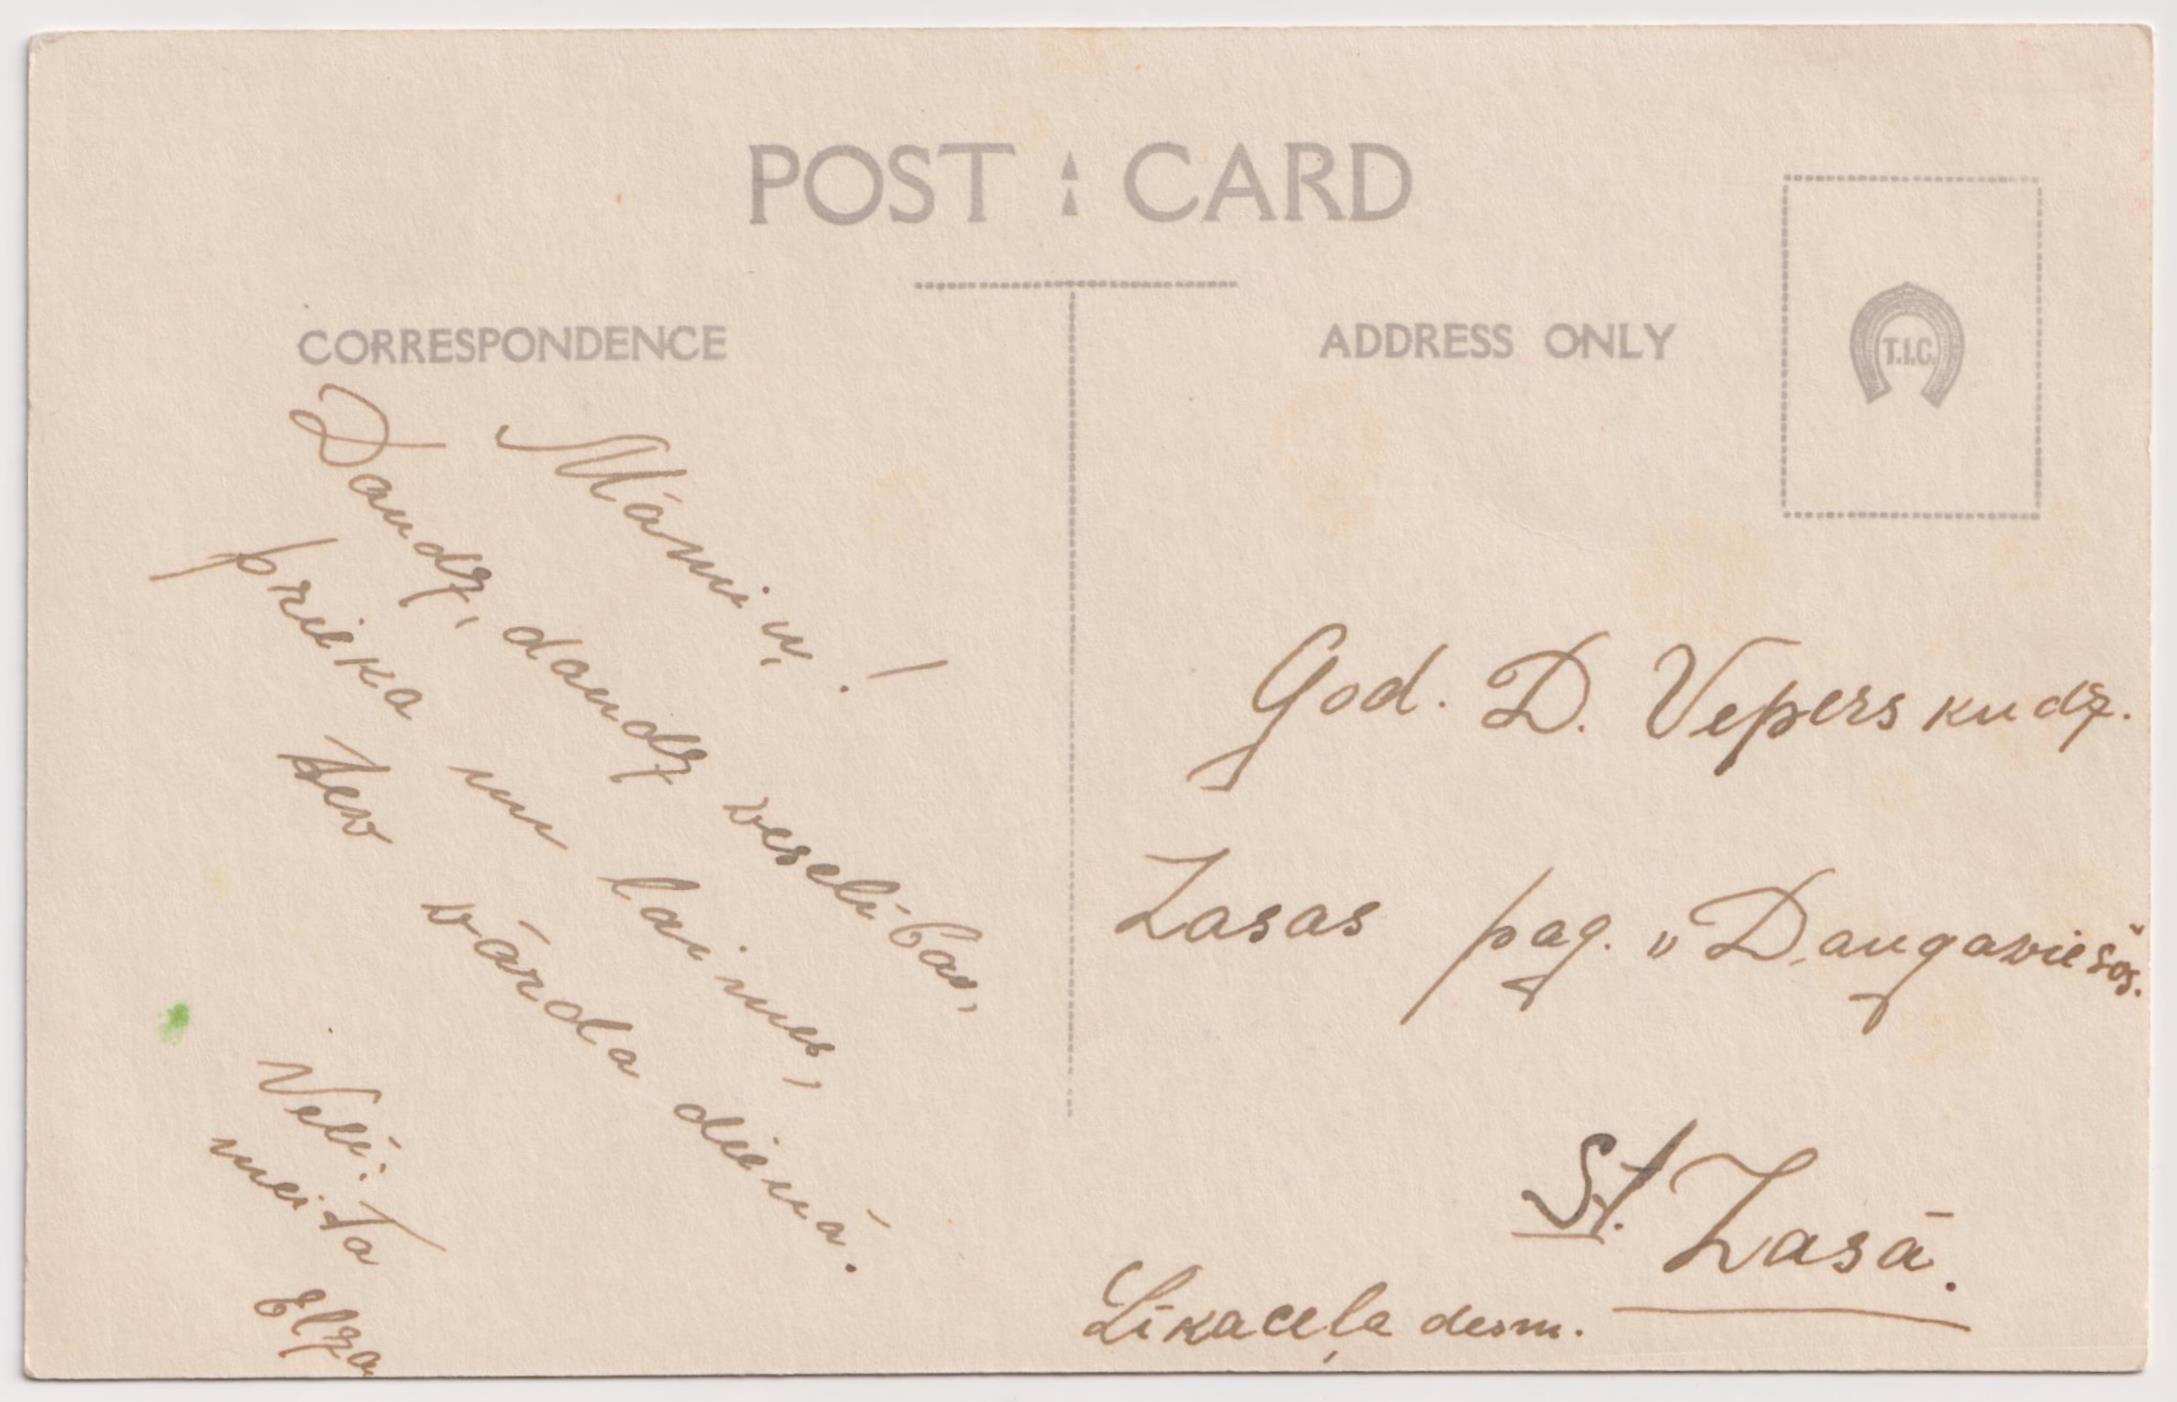 POST : CARD
CORRESPONDENCE
ADDRESS ONLY
T.I.C.
Māmiņ!
Daudz, daudz veselības,
prieka un laimes,
Tev vārda dienā.
Vēlē:
meita
Elza
God. D. Vepers kudz.
Zasas pag. „Daugaviešos.
St. Zasā.
Līkaceļa desm.